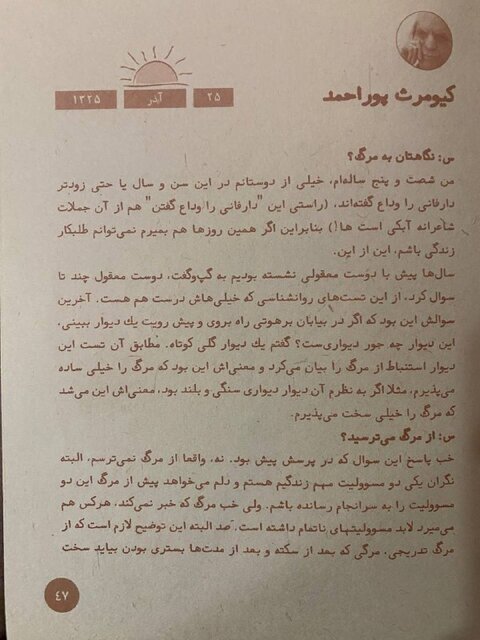 کیومرث پوراحمد
۲۵ آذر ۱۳۲۵
س: نگاهتان به مرگ؟
من شصت و پنج ساله‌ام، خیلی از دوستانم در این سن و سال یا حتی زودتر
دارفانی را وداع گفته‌اند، (راستی این "دارفانی را وداع گفتن" هم از آن جملات
شاعرانه آبکی است ها!) بنابراین اگر همین روزها هم بمیرم نمی‌توانم طلبکار
زندگی باشم، این از این.
سال‌ها پیش با دوست معقولی نشسته بودیم به گپ‌وگفت، دوست معقول چند تا
سوال کرد، از این تست‌های روانشناسی که خیلی‌هاش درست هم هست. آخرین
سوالش این بود که اگر در بیابان برهوتی راه بروی و پیش رویت یك دیوار ببینی.
این دیوار چه جور دیواری‌ست؟ گفتم یك دیوار گلی کوتاه. مطابق آن تست این
دیوار استنباط از مرگ را بیان می‌کرد و معنی‌اش این بود که مرگ را خیلی ساده
می‌پذیرم، مثلا اگر به نظرم آن دیوار دیواری سنگی و بلند بود، معنی‌اش این می‌شد
که مرگ را خیلی سخت می‌پذیرم.
س: از مرگ می‌ترسید؟
خب پاسخ این سوال که در پرسش پیش بود. نه، واقعا از مرگ نمی‌ترسم، البته
نگران یکی دو مسوولیت مهم زندگیم هستم و دلم می‌خواهد پیش از مرگ این دو
مسوولیت را به سرانجام رسانده باشم. ولی خب مرگ که خبر نمی‌کند، هرکس هم
می‌میرد لابد مسوولیتهای ناتمام داشته است. صد البته این توضیح لازم است که از
مرگ تدریجی. مرگی که بعد از سکته و بعد از مدت‌ها بستری بودن بیاید سخت
۴۷